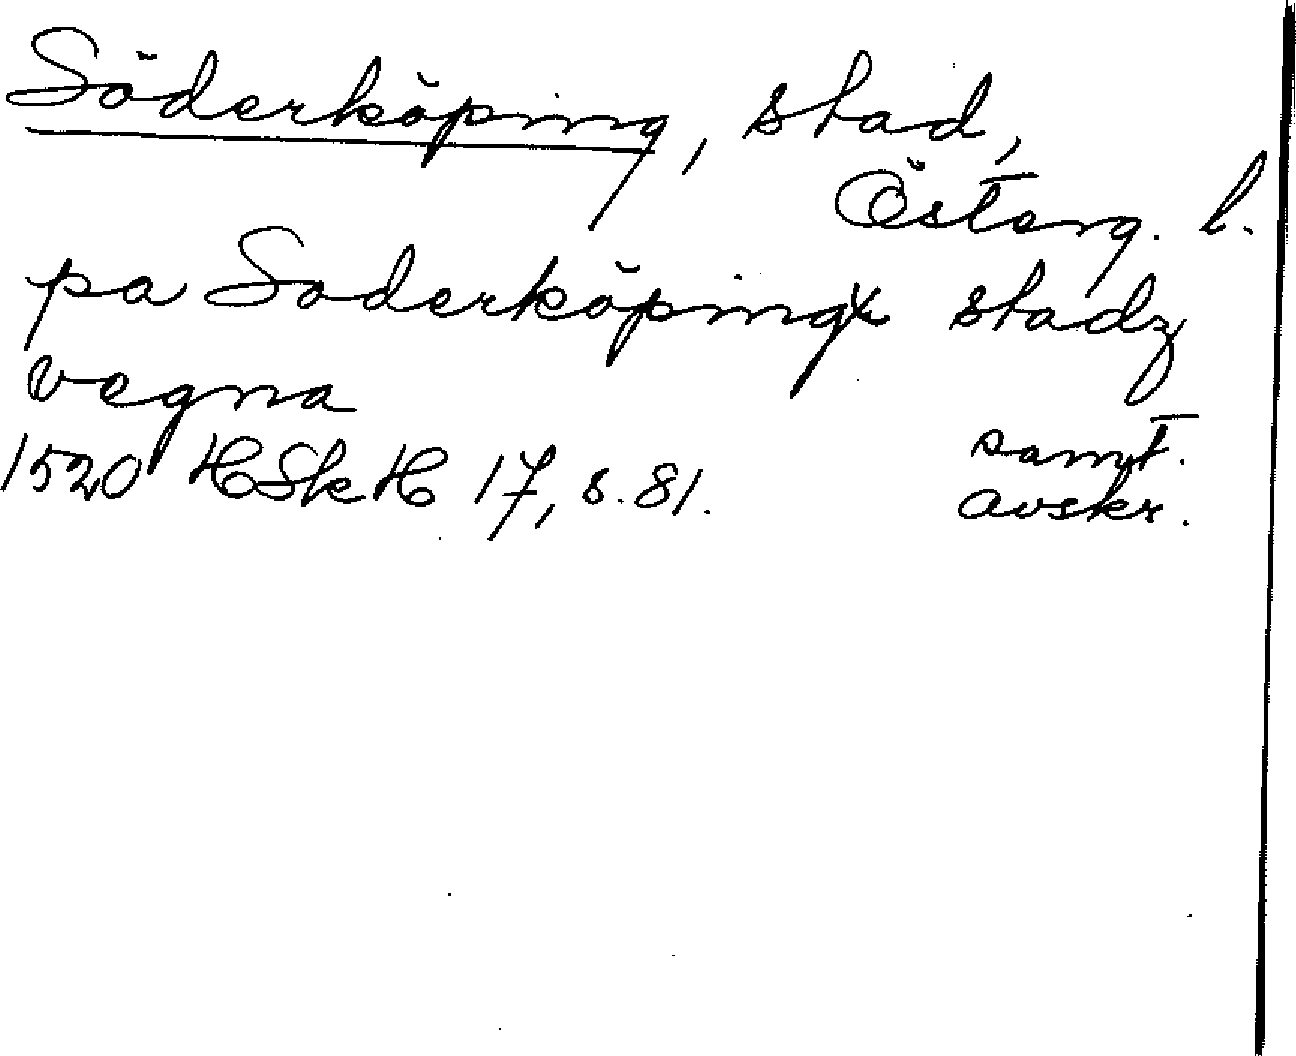 Söderköping, stad,
Österg. l.
pa Soderköpingx stadz
vegna
1520 HSkH 17, s. 81.
samt.
avskr.